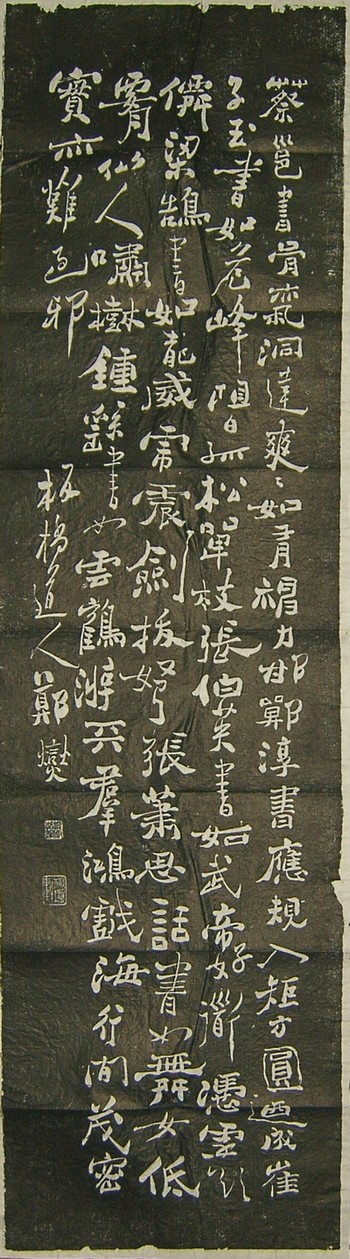 蔡邕書骨氣洞達爽爽如有神力邯鄲淳書應規入矩方圓迺成崔
子玉書如危峰阻日孤松單枝張伯英書如武帝好道憑虛欲
僊梁鵠書如龍威虎震劍拔弩張蕭思話書如舞女低
腰仙人嘯樹鍾繇書如雲鶴遊天羣鴻戲海行間茂密
實亦難過耶
板橋道人鄭燮